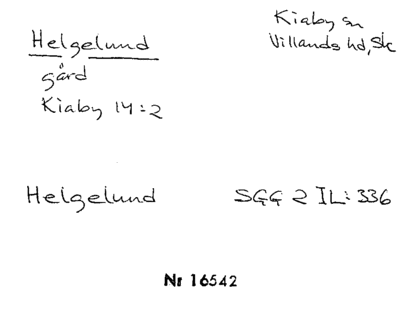 Helgelund
gård
Kiaby 14:2
Kiaby sn
Villands hd, Sk
Helgelund
SGG 2 IL: 336
Nr 16542